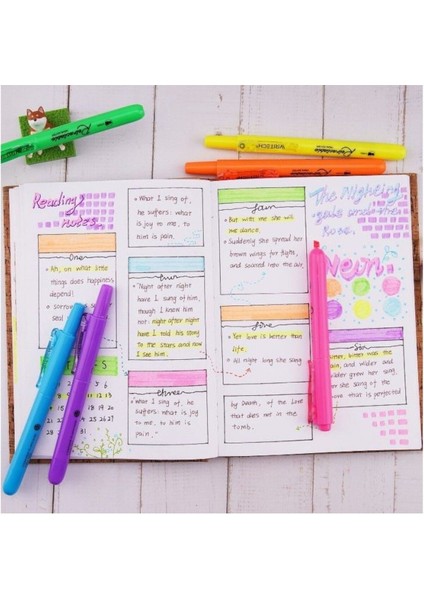 Reading
notes.
One
• Ah, on what little
things does happiness
depend!
S
• What I sing of,
he suffers: what is
joy to me, to
him is pain.
two
"Night after night
have I sung of him,
though I knew him
not: night after night
have I told his story
to the stars and now
I see him.
three
"What I sing of, he
suffers: what is joy
to me, to him is
pain."
four
But with me she will
we dance.
• Suddenly she spread her
brown wings for flight,
and soared into the air.
five
• Yet love is better than
life.
• All night long she sang
by Death, of the Love
that dies not in the
tomb.
The Nightin
gale and the
Rose.
Neon
Six
bitter, bitter was the
pain, and wilder and
wilder grew her song,
for she sang of the
that is perfected
WRITECH